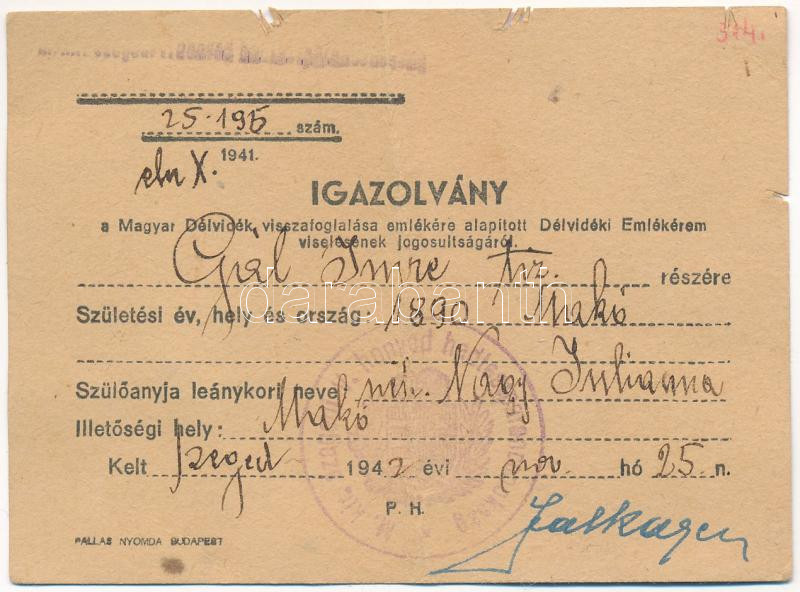 324.
25.195 szám.
eln X. 1941.
IGAZOLVÁNY
a Magyar Délvidék visszafoglalása emlékére alapított Délvidéki Emlékérem
viselésének jogosultságáról.
Gál Imre tiz. részére
Születési év, hely és ország 1890 Makó
Szülőanyja leánykori neve Nagy Julianna
Illetőségi hely: Makó
Kelt Szeged 1942 évi nov. hó 25. n.
P. H.
PALLAS NYOMDA BUDAPEST
darabanth